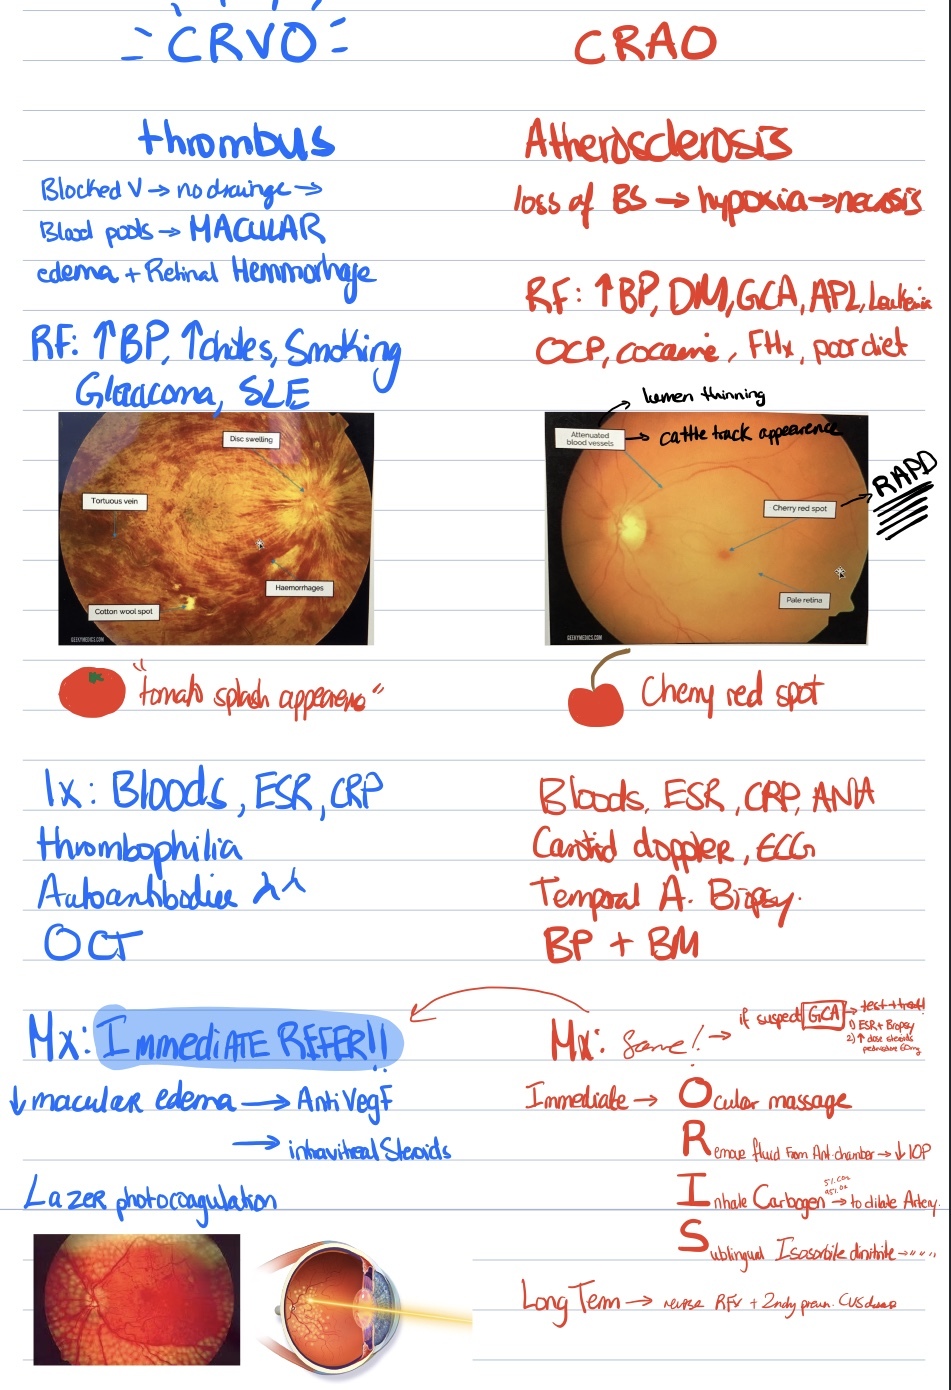 CRVO
thrombus
Blocked V → no drainge →
Blood pools → MACULAR
edema + Retinal Hemmorhage
RF: ↑BP, ↑choles, Smoking
Glaucoma, SLE
Disc swelling
Tortuous vein
Haemorrhages
Cotton wool spot
GEEKYMEDICS.COM
"tomato splash appearence"
Ix: Bloods, ESR, CRP
thrombophilia
Autoantibodies
OCT
Mx: Immediate REFER!!
↓ macular edema → Anti Vegf
→ intravitreal Steroids
Lazer photocoagulation
CRAO
Atherosclerosis
loss of BS → hypoxia → necrosis
RF: ↑BP, DM, GCA, APL, Leukemia
OCP, cocaine, FHx, poor diet
lumen thinning
Attenuated
blood vessels
→ cattle track appearence
Cherry red spot
→ RAPD
Pale retina
GEEKYMEDICS.COM
Cherry red spot
Bloods, ESR, CRP, ANA
Carotid doppler, ECG
Temporal A. Biopsy.
BP + BM
Mx: Same! → if suspect GCA → test + treat!
1) ESR + Biopsy
2) ↑ dose steroids
60mg
Immediate → Ocular massage
Remove fluid from Ant. chamber → ↓ IOP
Inhale Carbogen → to dilate Artery.
5% CO2
95% O2
Sublingual Isosorbite dinitrite → " "
Long Term → RFx + 2ndy preven. CVS